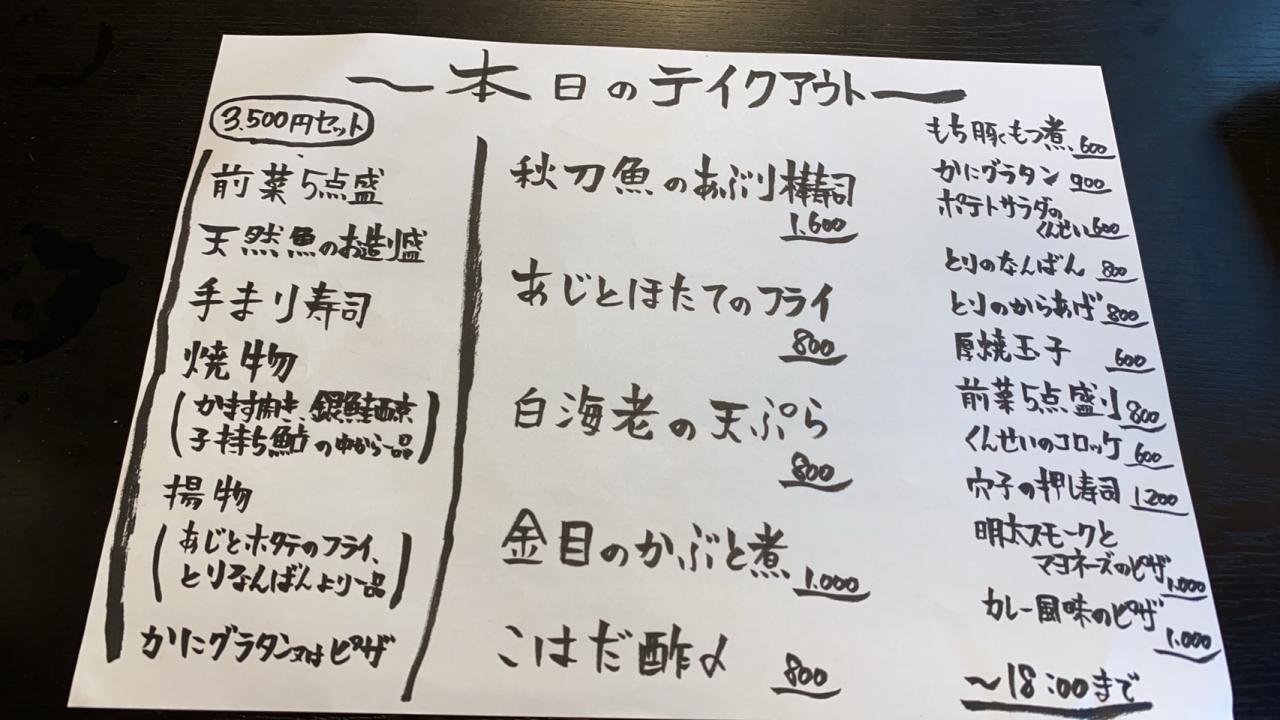 〜本日のテイクアウト〜
3.500円セット
前菜5点盛
天然魚のお造り盛
手まり寿司
焼物
(かます開き、銀鮭西京
子持ち鮎の中から一品)
揚物
(あじとホタテのフライ、
とりなんばんより一品)
かにグラタン又はピザ
秋刀魚のあぶり棒寿司
1.600
あじとほたてのフライ
800
白海老の天ぷら
800
金目のかぶと煮 1.000
こはだ酢〆 800
もち豚もつ煮 600
かにグラタン 900
ポテトサラダの
くんせい 600
とりのなんばん 800
とりのからあげ 800
厚焼玉子 600
前菜5点盛り 800
くんせいのコロッケ 600
穴子の押し寿司 1200
明太スモークと
マヨネーズのピザ 1.000
カレー風味のピザ
1.000
〜18:00まで